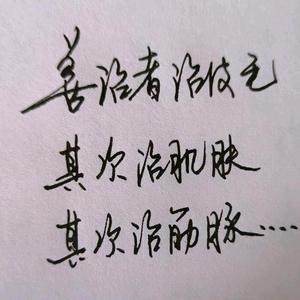 善治者治皮毛
其次治肌肤
其次治筋脉....